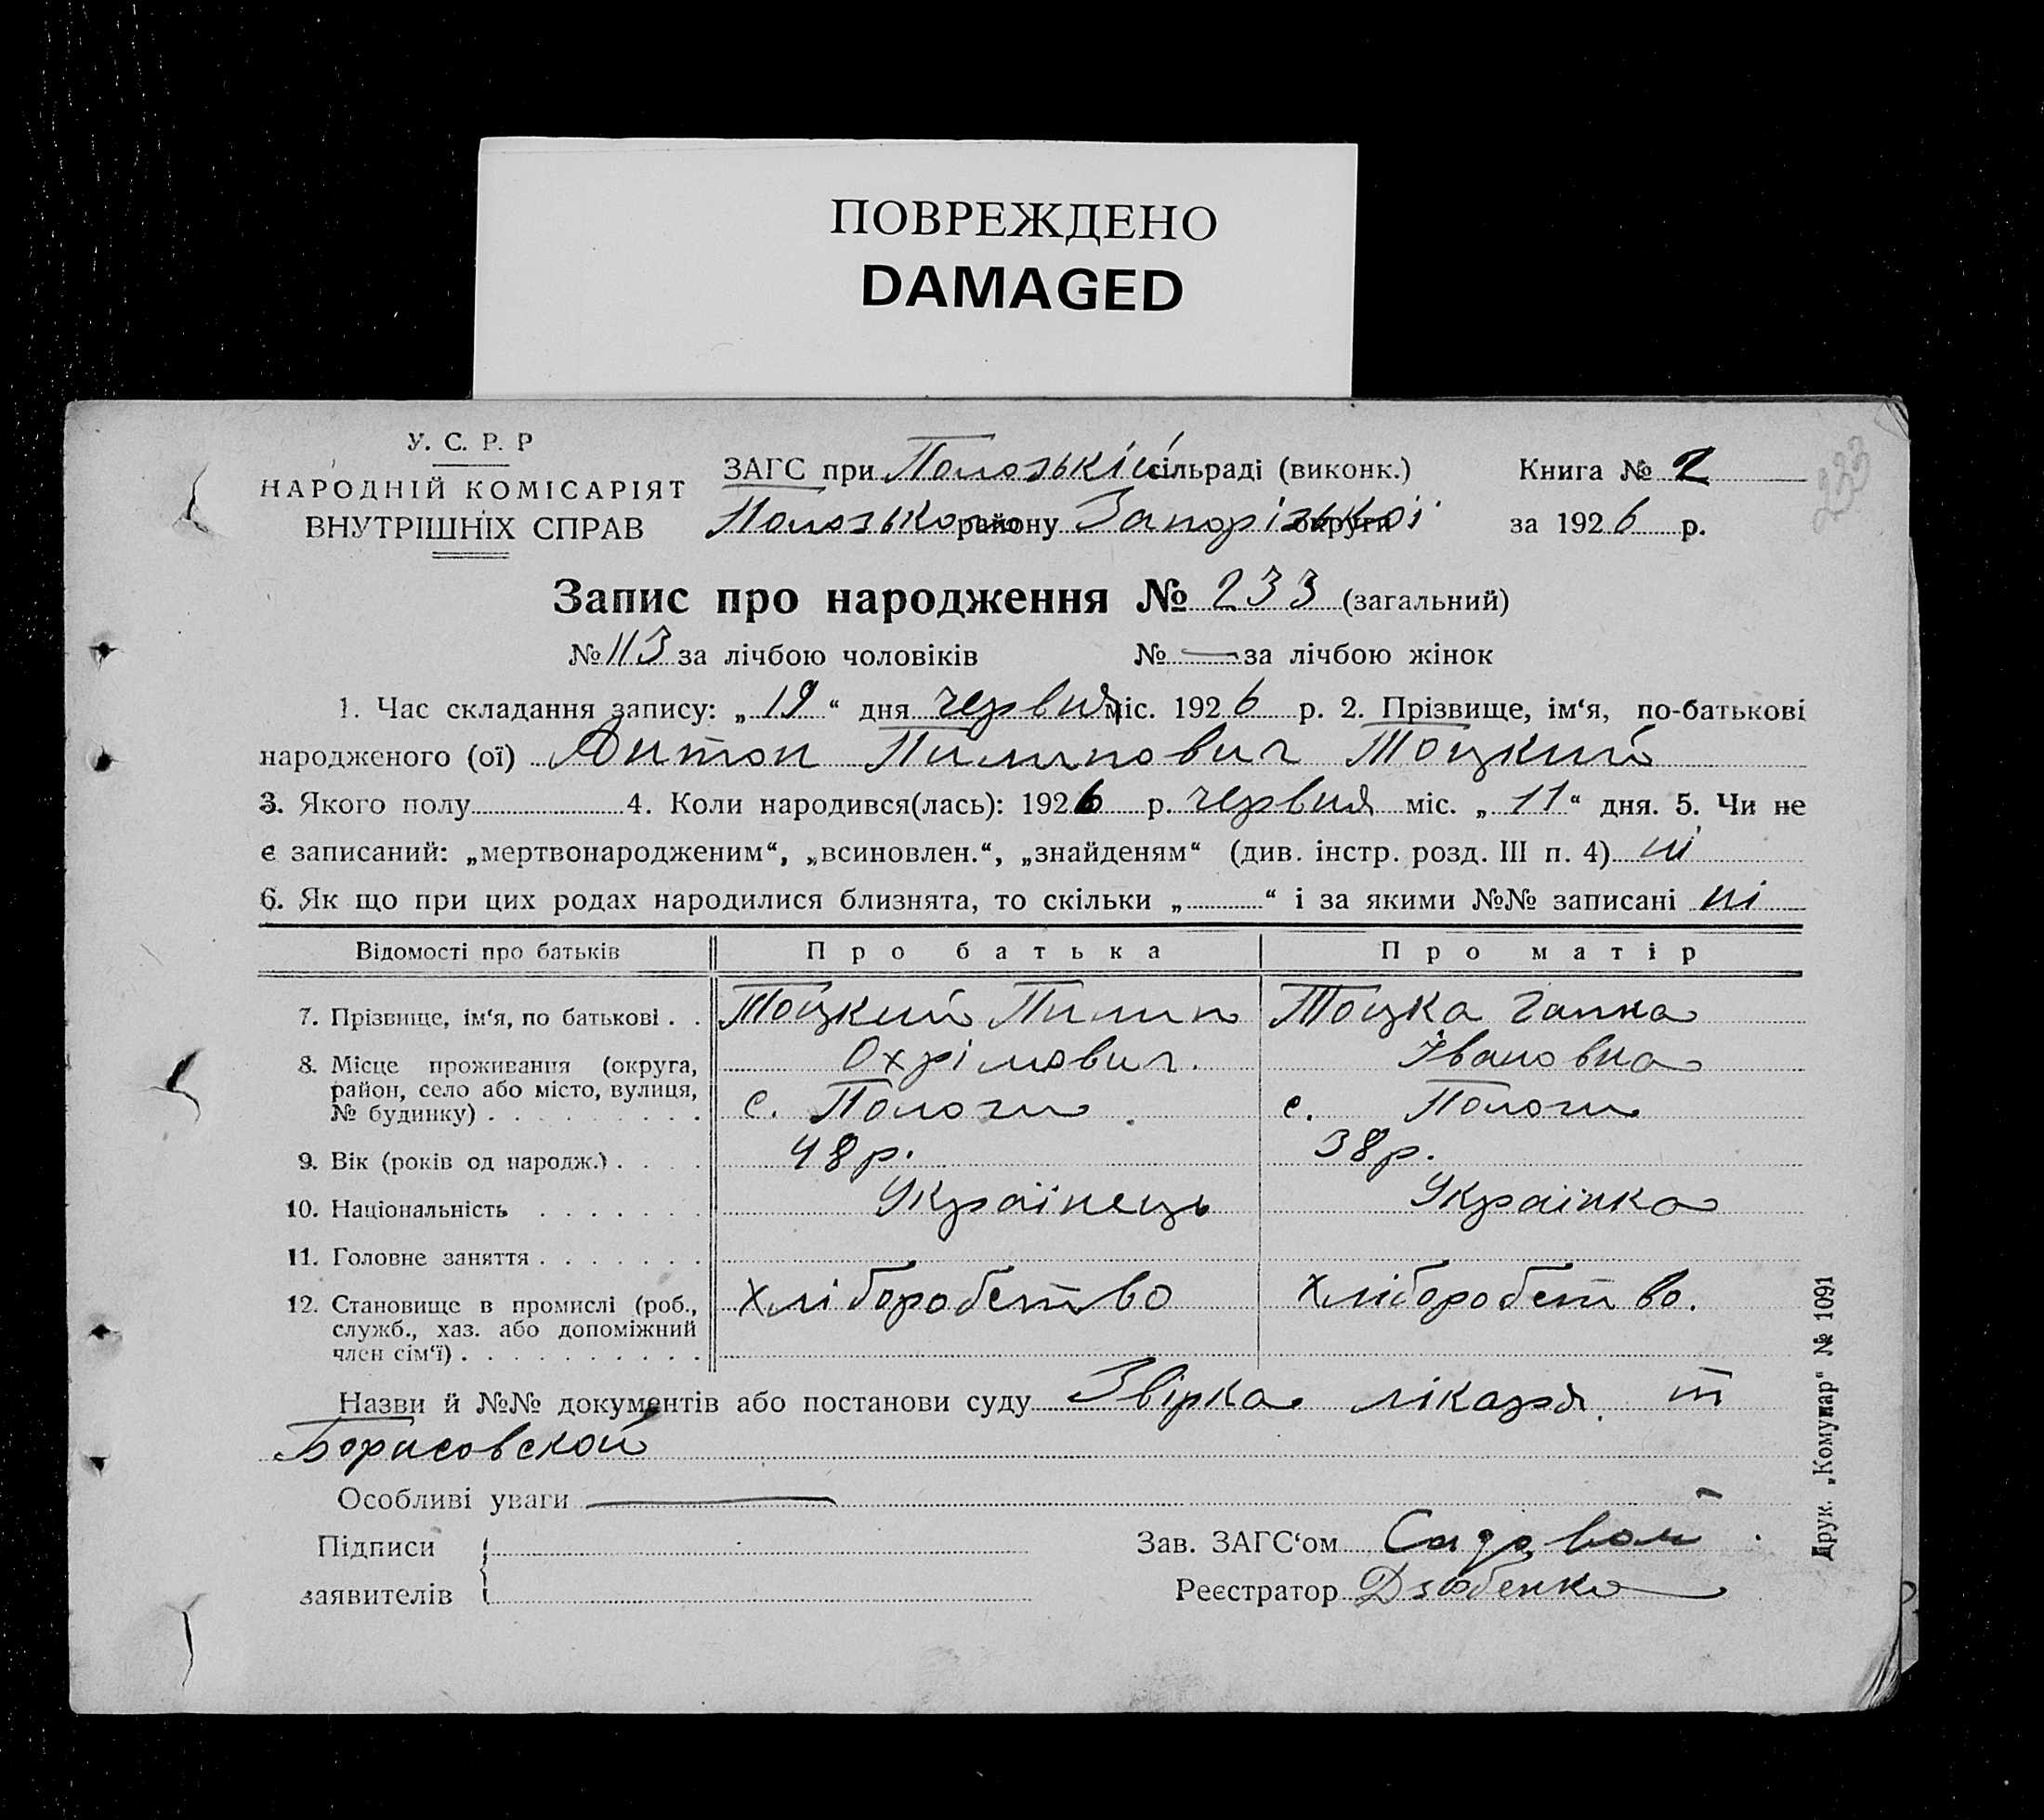 ПОВРЕЖДЕНО
DAMAGED
233
У. С. Р. Р
НАРОДНІЙ КОМІСАРІЯТ
ВНУТРІШНІХ СПРАВ
ЗАГС при Полозькій сільраді (виконк.)
Полозького району Запорізької округи
Книга № 2
за 1926 р.
Запис про народження № 233 (загальний)
№ 113 за лічбою чоловіків № — за лічбою жінок
1. Час складання запису: „ 19 “ дня червня міс. 1926 р. 2. Прізвище, ім‘я, по-батькові
народженого (ої) Антон Пилипович Тоцкий
3. Якого полу 4. Коли народився(лась): 1926 р. червня міс. „ 11 “ дня. 5. Чи не
є записаний: „мертвонародженим“, „всиновлен.“, „знайденям“ (див. інстр. розд. III п. 4) ні
6. Як що при цих родах народилися близнята, то скільки „ “ і за якими №№ записані ні
Відомості про батьків Про батька Про матір
7. Прізвище, ім‘я, по батькові . . Тоцкий Пилип Тоцка Гапка
Охрімович. Івановна
8. Місце проживання (округа,
район, село або місто, вулиця,
№ будинку) . . . . . . . . . с. Пологи . с. Пологи
9. Вік (років од народж.) . . . . 48 р. 38 р.
10. Національність . . . . . . . Українець Українка
11. Головне заняття . . . . . . .
12. Становище в промислі (роб.,
служб., хаз. або допоміжний
член сім‘ї) . . . . . . . . . . . хліборобство хліборобство.
Назви й №№ документів або постанови суду лікаря. т
Борисовской
Особливі уваги —
Підписи
заявителів
Зав. ЗАГС‘ом Садовой
Реєстратор Дзюбенко
Друк. „Комунар“ № 1091